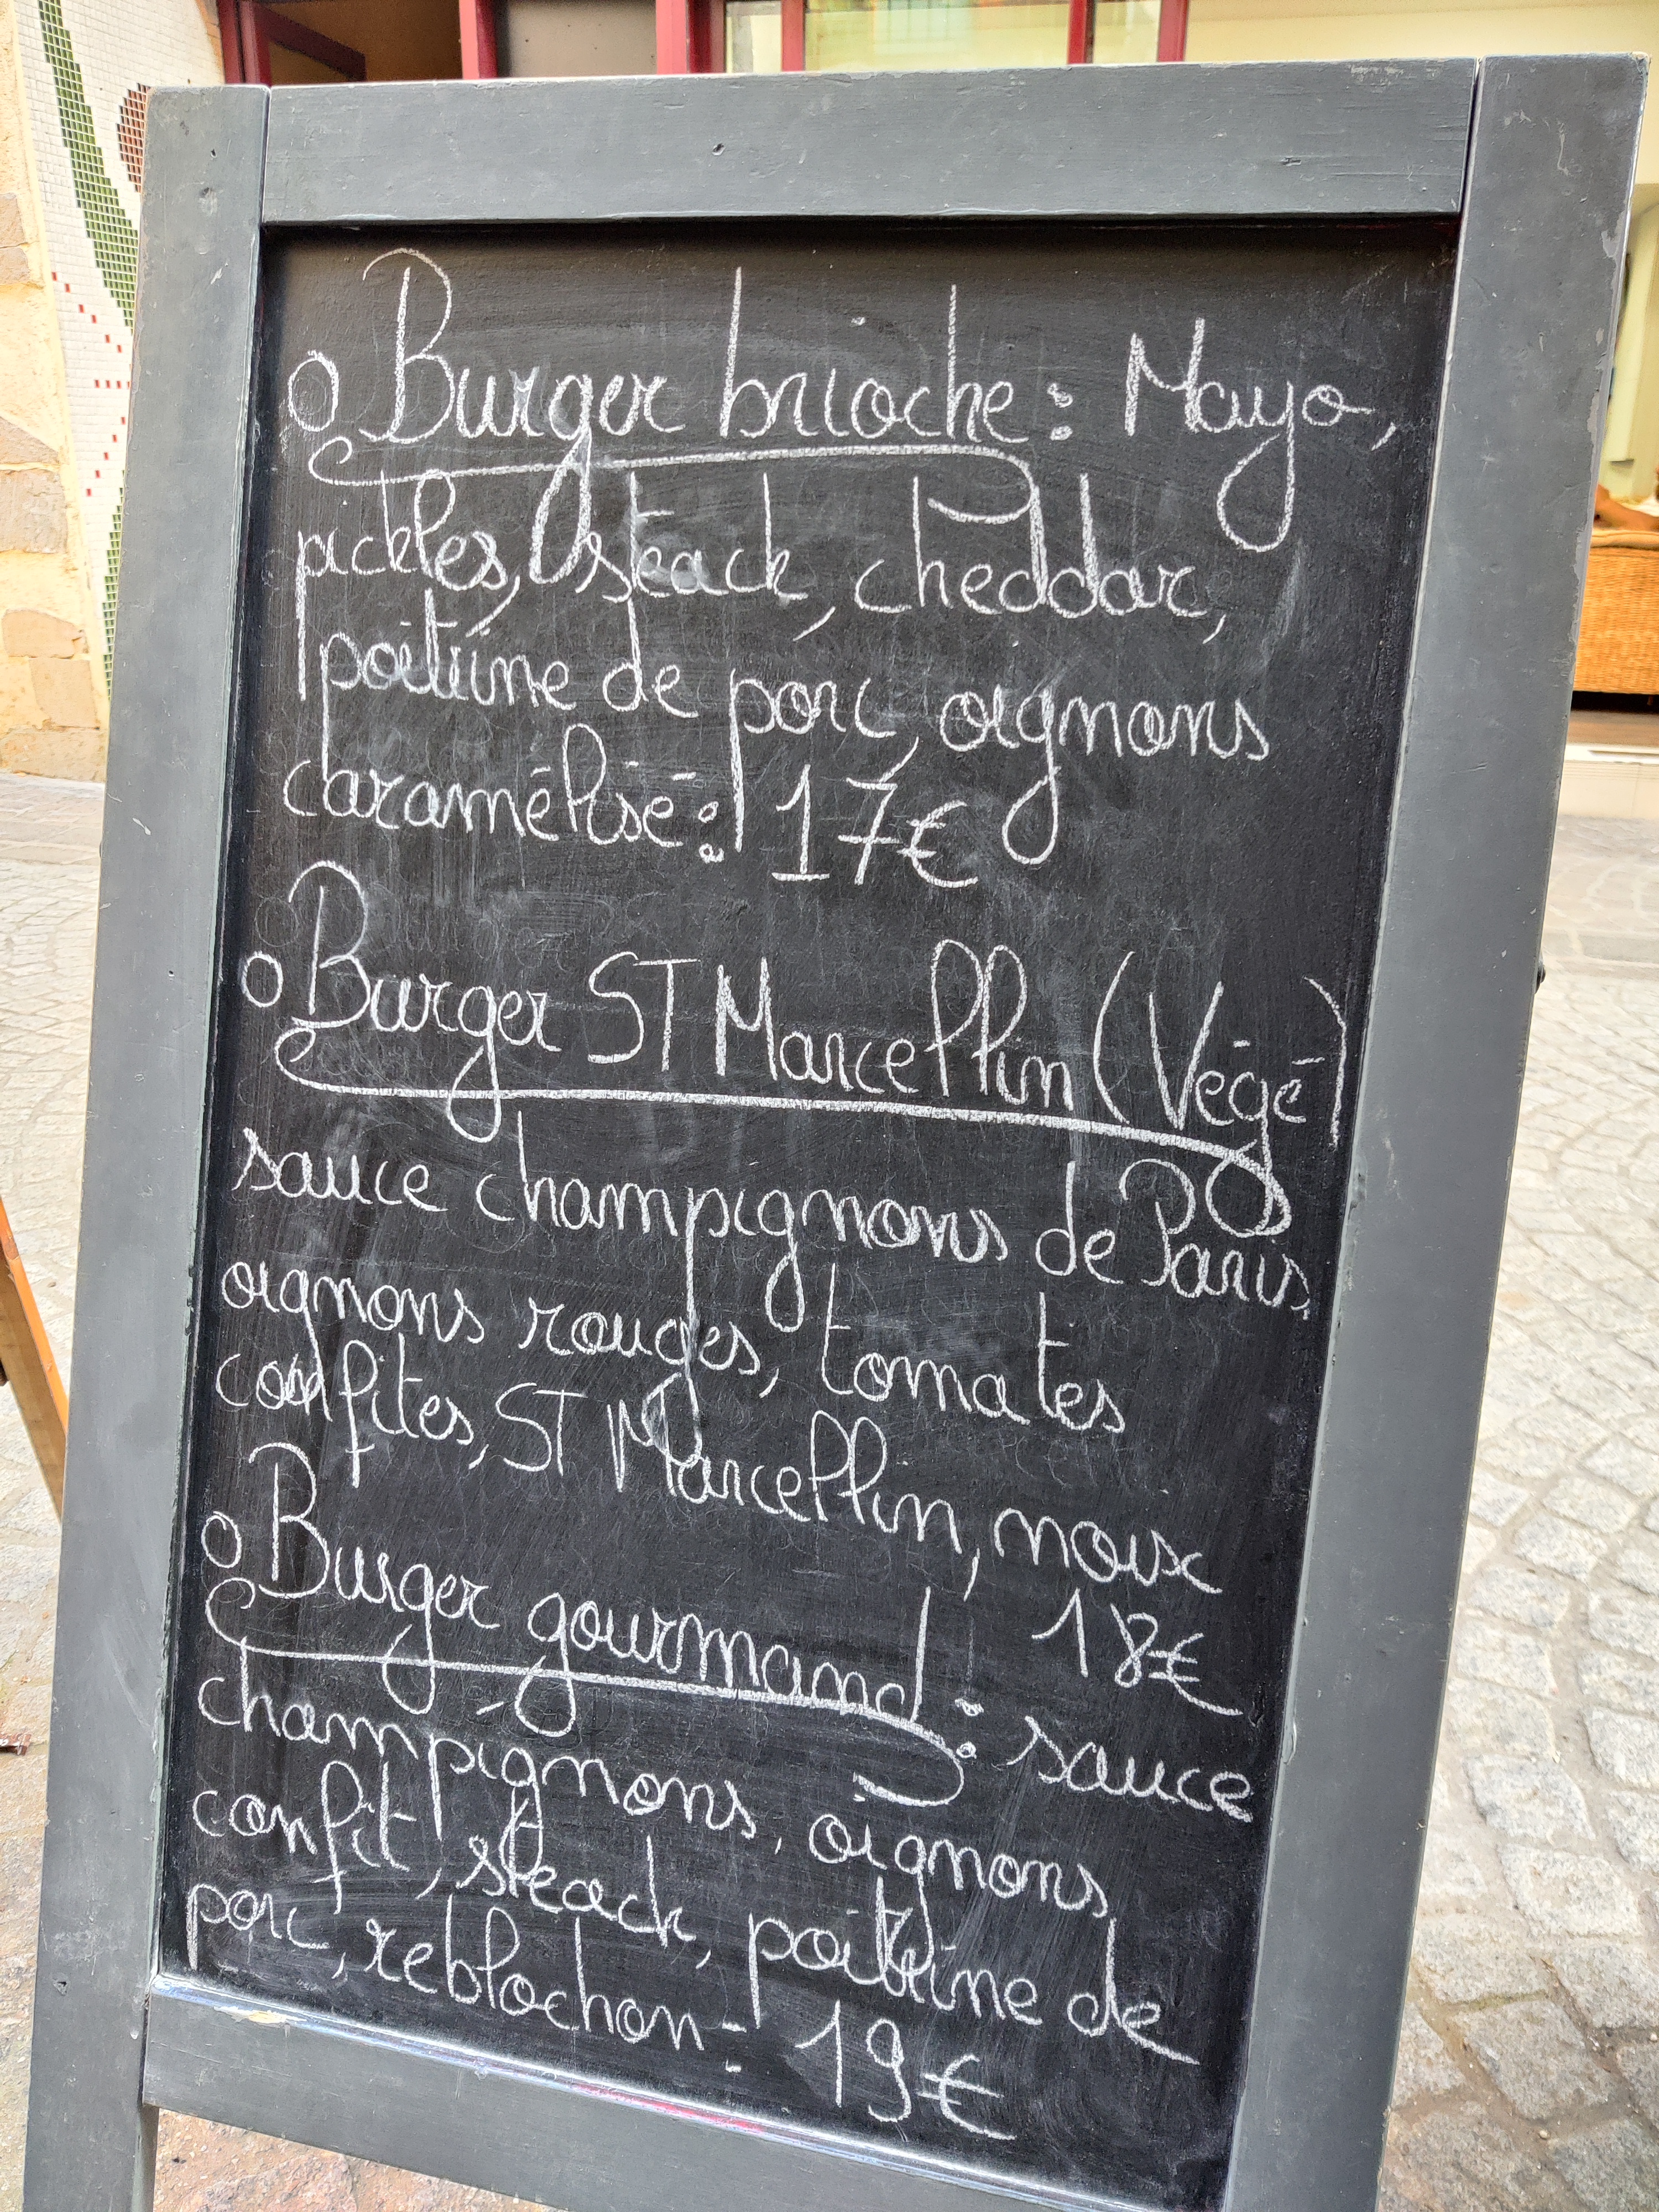 o Burger brioche : Mayo,
pickles, steack, cheddar,
poitrine de porc, oignons
caramélisé : 17€
o Burger ST Marcellin (Végé)
sauce champignons de Paris,
oignons rouges, tomates
confites, ST Marcellin, noix
18€
o Burger gourmand : sauce
champignons, oignons
confit, steack, poitrine de
porc, reblochon : 19€